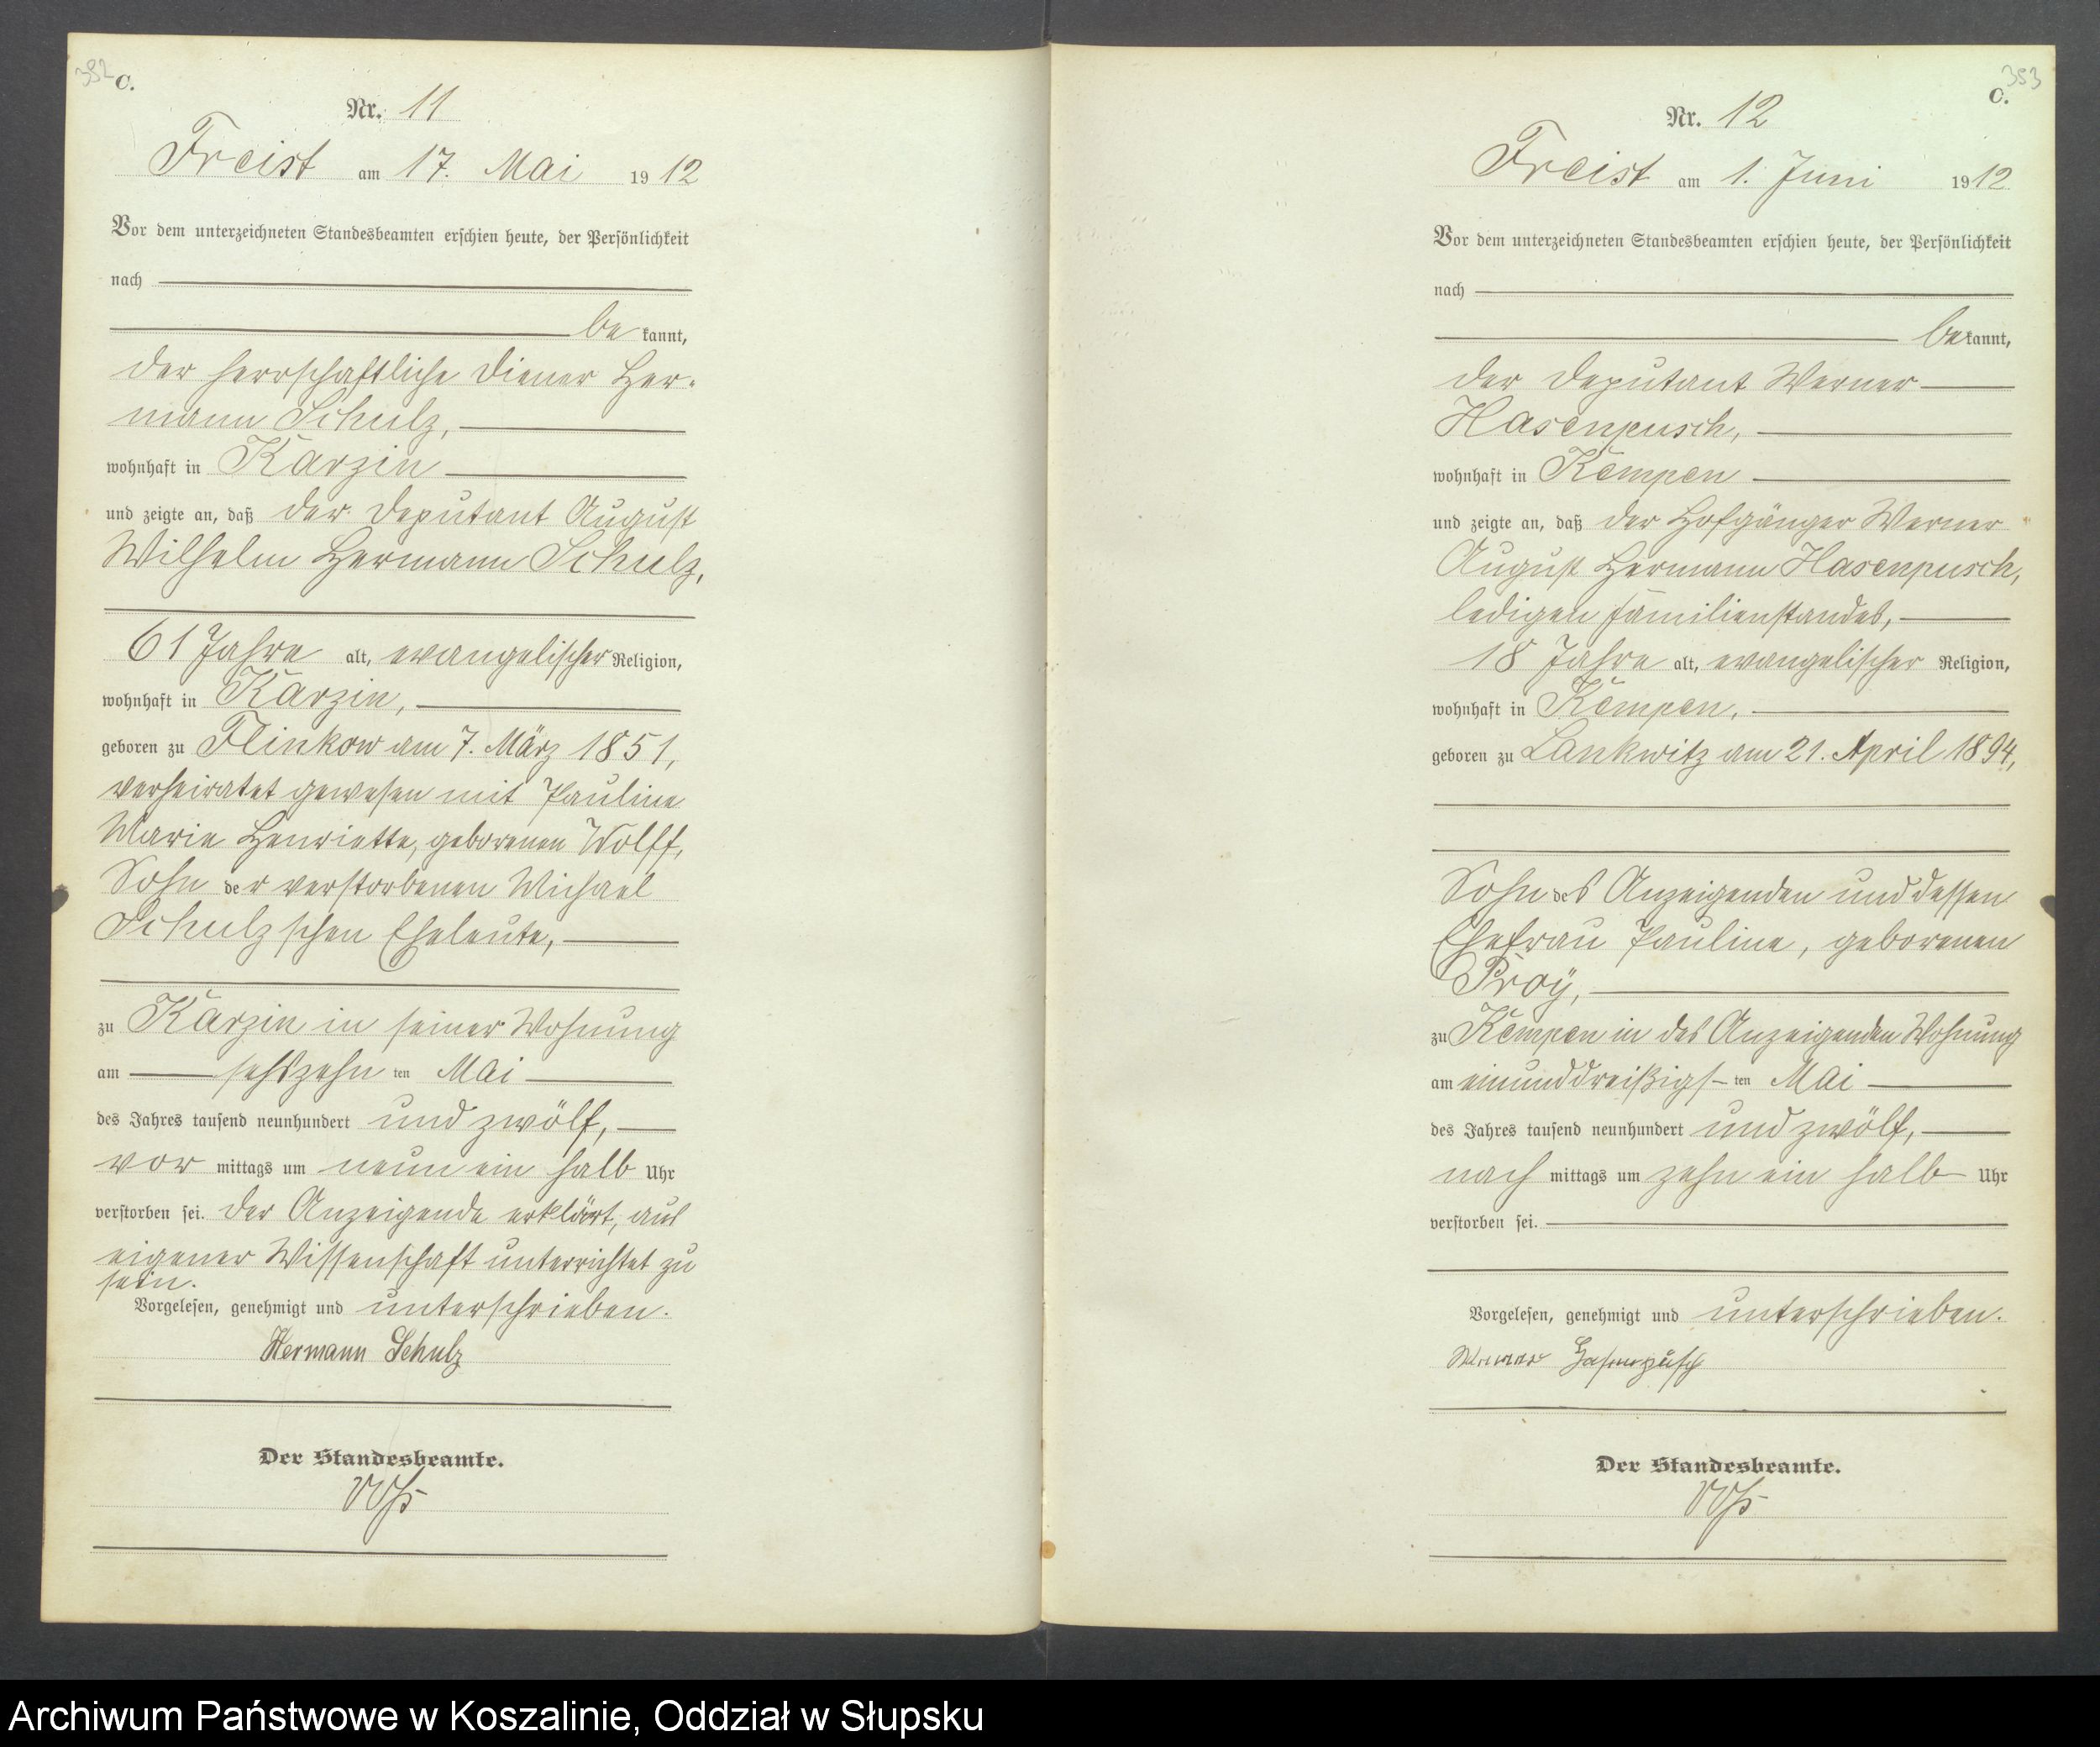 352
C.
Nr. 11
Freist am 17. Mai 1912
Vor dem unterzeichneten Standesbeamten erschien heute, der Persönlichkeit
nach
be kannt,
der herrschaftliche Diener Her-
mann Schulz,
wohnhaft in Karzin
und zeigte an, daß der Deputant August
Wilhelm Hermann Schulz,
61 Jahre alt, evangelischer Religion,
wohnhaft in Karzin,
geboren zu Flinkow am 7. März 1851,
verheiratet gewesen mit Pauline
Marie Henriette, geborenen Wolff,
Sohn der verstorbenen Michael
Schulz schen Eheleute,
zu Karzin in seiner Wohnung
am sechszehn ten Mai
des Jahres tausend neunhundert und zwölf,
vor mittags um neun ein halb Uhr
verstorben sei. Der Anzeigende erklärt, aus
eigener Wissenschaft unterrichtet zu
sein.
Vorgelesen, genehmigt und unterschrieben.
Hermann Schulz
Der Standesbeamte.
353
C.
Nr. 12
Freist am 1. Juni 1912
Vor dem unterzeichneten Standesbeamten erschien heute, der Persönlichkeit
nach
be kannt,
der Deputant Werner
Hasenpusch,
wohnhaft in Kempen
und zeigte an, daß der Hofgänger Werner
August Hermann Hasenpusch,
ledigen Familienstandes,
18 Jahre alt, evangelischer Religion,
wohnhaft in Kempen,
geboren zu Lankwitz am 21. April 1894,
Sohn des Anzeigenden und dessen
Ehefrau Pauline, geborenen
Proÿ,
zu Kempen in des Anzeigenden Wohnung
am einunddreißigs- ten Mai
des Jahres tausend neunhundert und zwölf,
nach mittags um zehn ein halb Uhr
verstorben sei.
Vorgelesen, genehmigt und unterschrieben.
Werner Hasenpusch
Der Standesbeamte.
Archiwum Państwowe w Koszalinie, Oddział w Słupsku